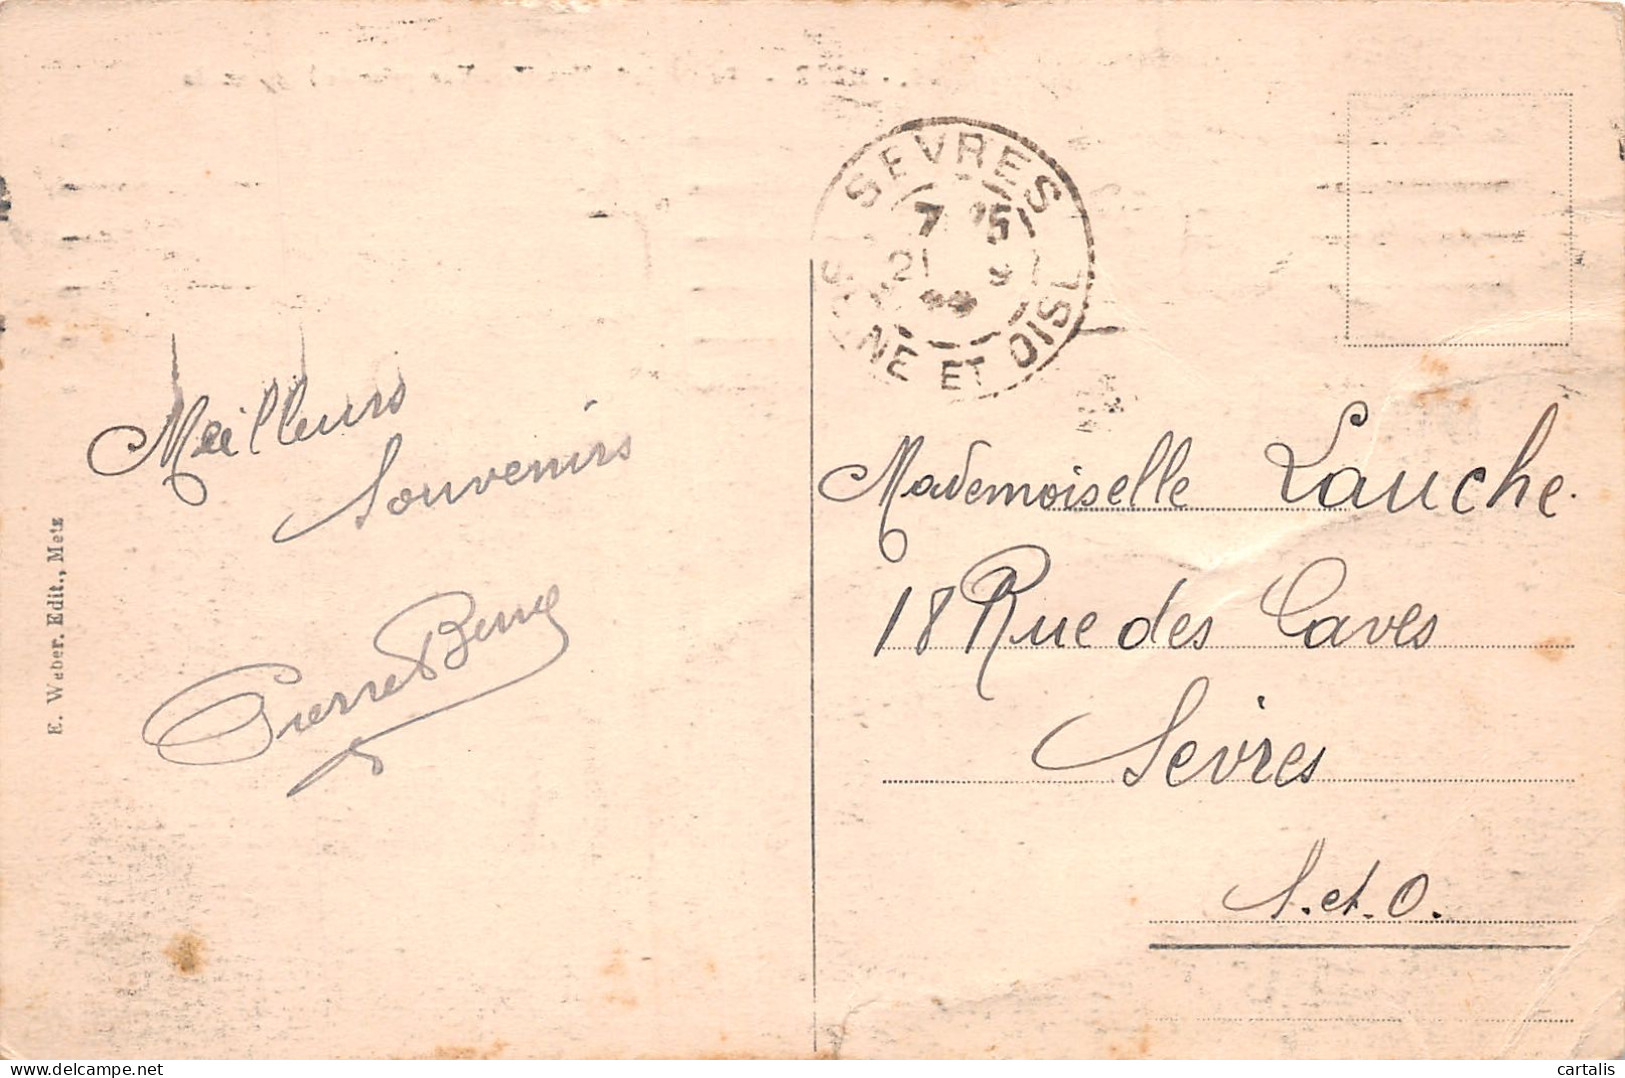 Meilleurs
Souvenirs
E. Weber. Edit., Metz
SEVRES
7 15
21 9
SEINE ET OISE
Mademoiselle Lauche.
18 Rue des Caves
Sèvres
S. et. O.
cartalis